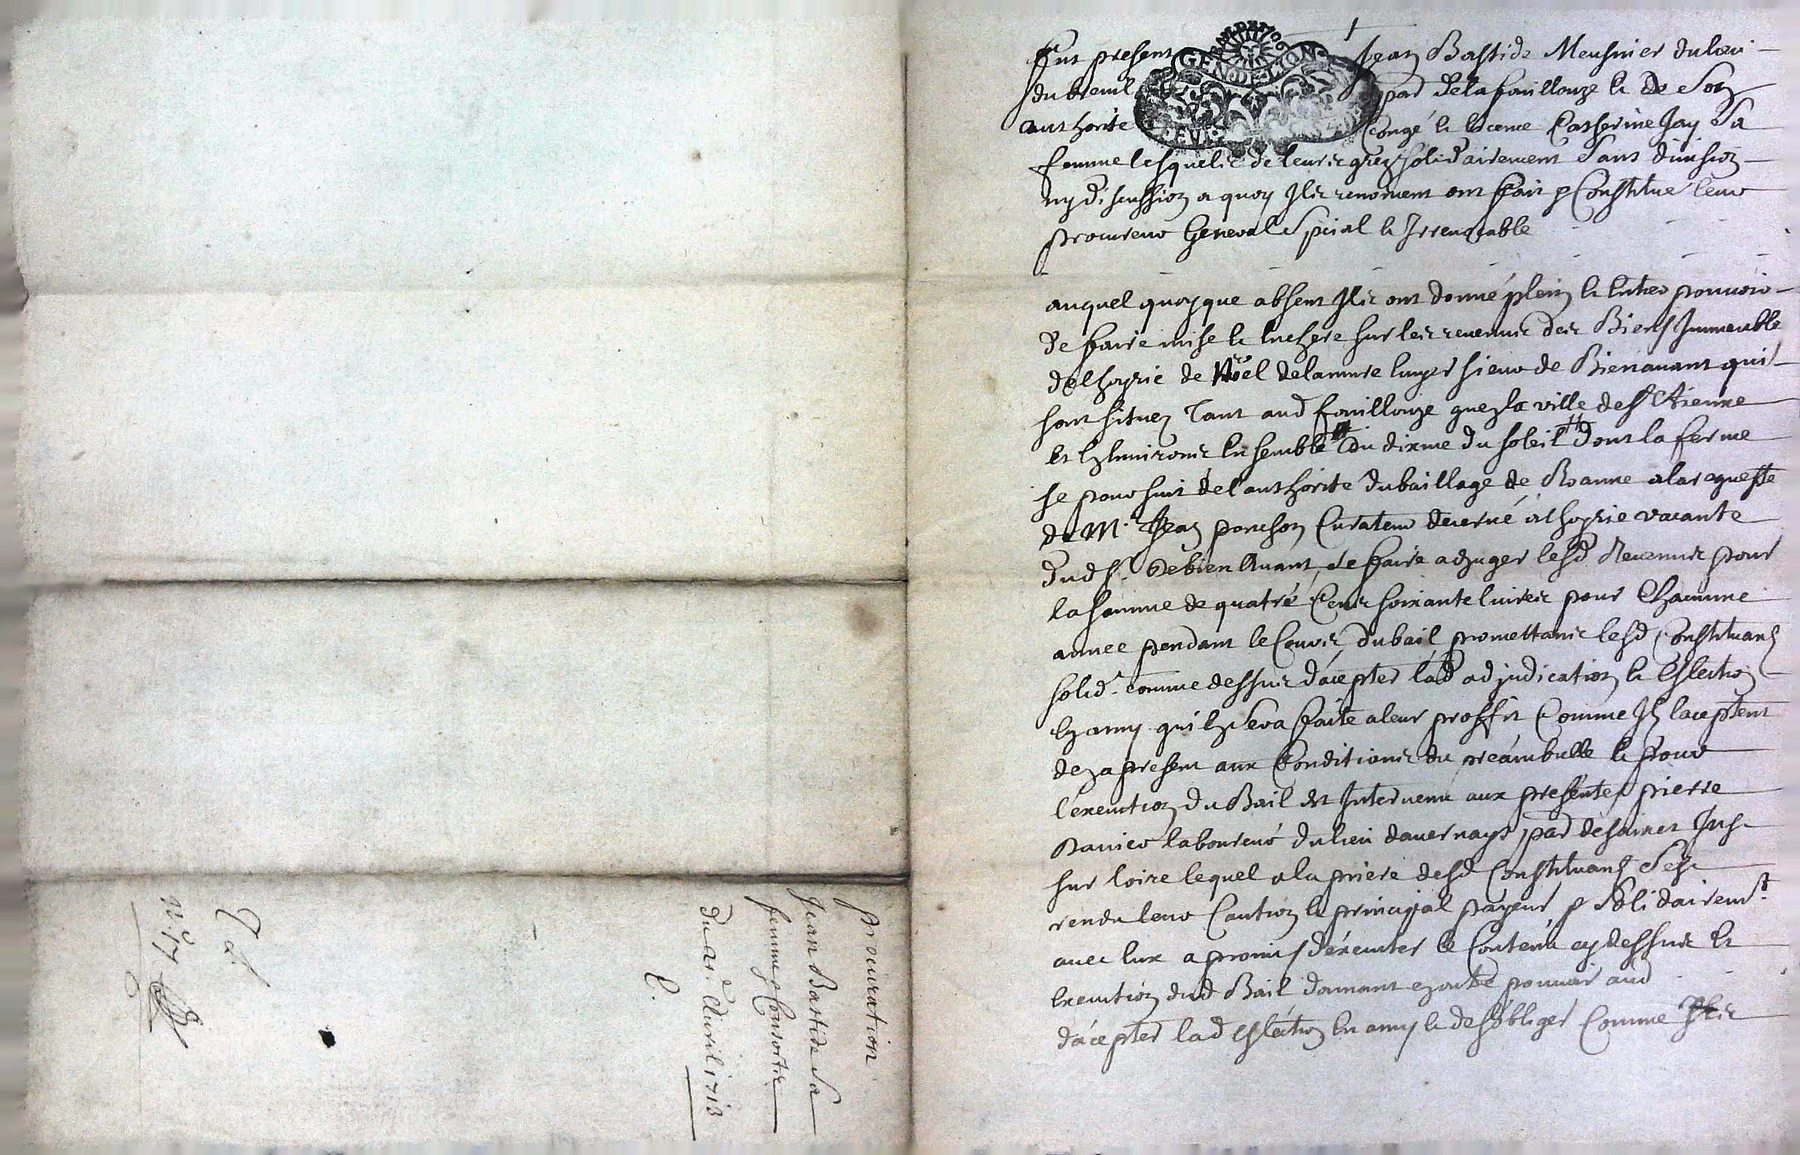 procuration
Jean Bastide sa
femme & Consortz
du 21e Avril 1713
C.
n° 17
GEN DE LION
Fut present Jean Bastide Meusnier du lieu
du breuil par de lafouillouze & de son
authorité congé & licence Catherine Jay sa
femme lesquelz de leurs grez solidairement sans division
ny discussion a quoy Ilz renoncent ont fait & Constitué leur
procureur General Special & Irrevocable
auquel quoyque absent Ilz ont donné plein & entier pouvoir
de faire mise & enchere sur les revenus des Biens Immeuble
delhoyrie de Noel delamure Sieur de Bienavant qui
sont situez tant aud fouillouze quez la ville de St Etienne
et Environs Ensemble du dixme du soleil dont la ferme
se poursuit de l'authorité du baillage de Roanne a la requeste
de Mr. Jean ponchon Curateur decerné a lhoyrie vacante
dud Sr. de bien Avant, de faire adjuger lesd Revenus pour
la somme de quatre Cens soixante livres pour Chacunne
annee pendant le Cours du bail promettans lesd Constituans
solidt. comme dessus d'acepter lad adjudication & Eslection
En amy quil En sera faite a leur proffit Comme Ilz laceptent
deza present aux Conditions du preambulle & pour
l'execution du Bail Est Intervenu aux presentes pierre
laboureur du lieu davernays par de saint Just
sur loire lequel a la priere desd Constituans s'est
rendu leur Caution & principal payeur & solidairemt.
avec Eux a promis d'executer le Contenu cy dessus Et
Execution dud Bail donnant pouvoir aud
d'acepter lad Eslection En amy & de s'obliger Comme Ilz